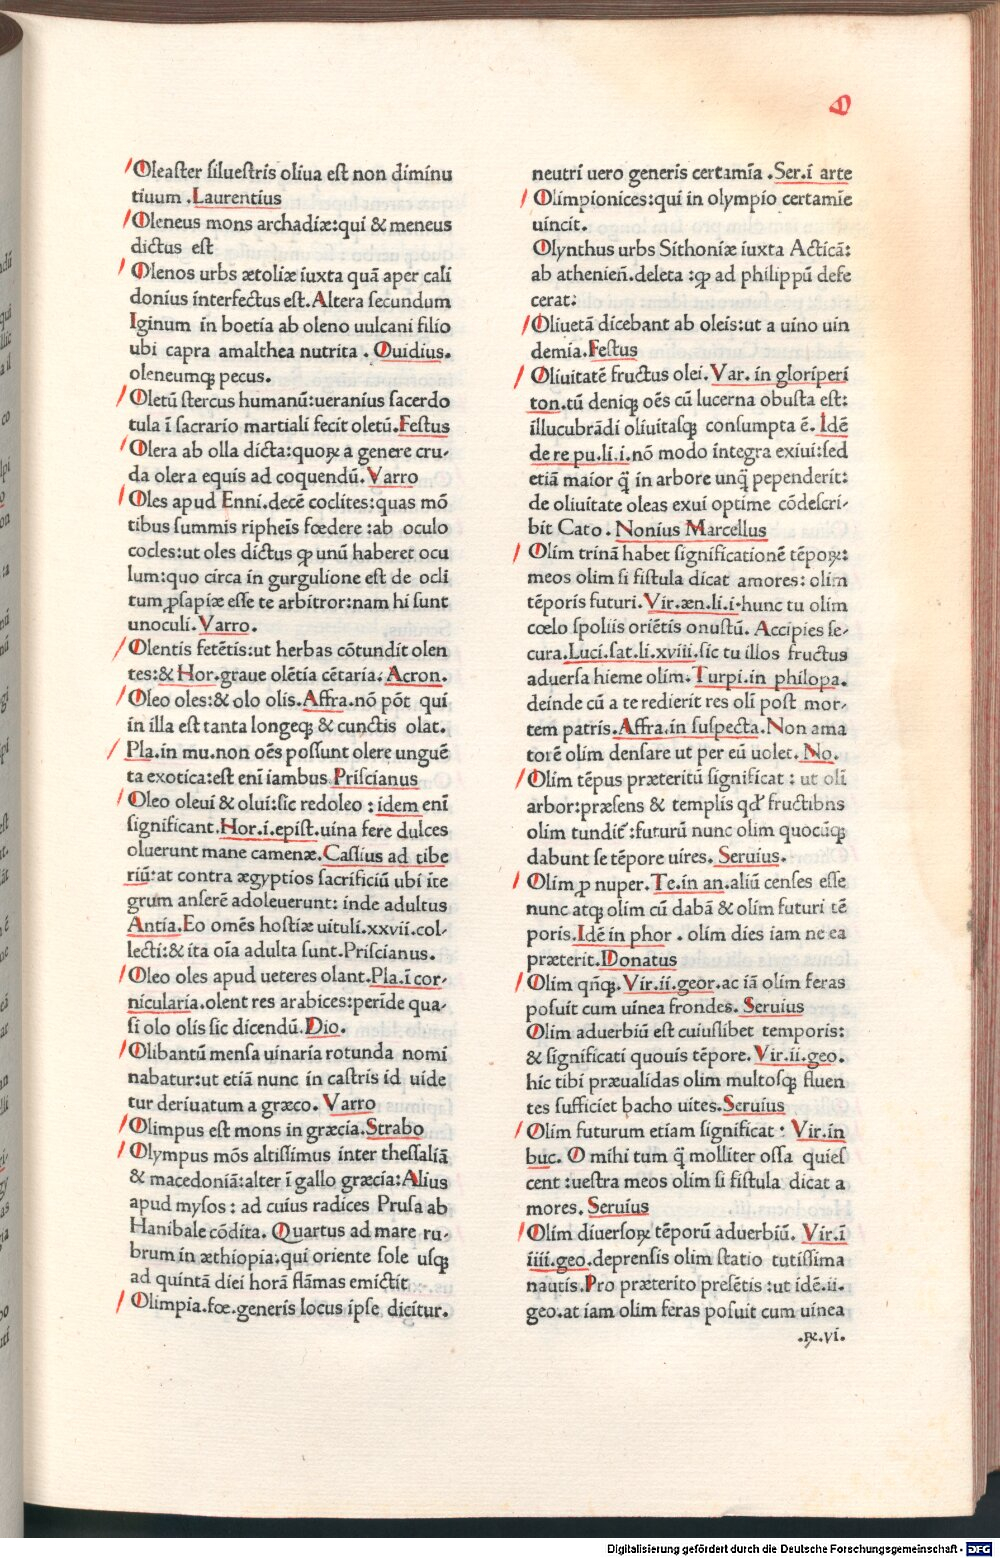 O
Oleaster siluestris oliua est non diminu
tiuum .Laurentius
Oleneus mons archadiæ:qui & meneus
dictus est
Olenos urbs ætoliæ iuxta quā aper cali
donius interfectus est.Altera secundum
Iginum in boetia ab oleno uulcani filio
ubi capra amalthea nutrita . Ouidius.
oleneumq; pecus.
Oletū stercus humanū:ueranius sacerdo
tula ī sacrario martiali fecit oletū.Festus
Olera ab olla dicta:quoꝝ a genere cru-
da olera equis ad coquendū. Varro
Oles apud Enni.decē coclites:quas mō
tibus summis ripheis fœdere :ab oculo
cocles:ut oles dictus ꝙ unū haberet ocu
lum:quo circa in gurgulione est de ocli
tum ꝓsapiæ esse te arbitror:nam hi sunt
unoculi.Varro.
Olentis fetētis:ut herbas cōtundit olen
tes:& Hor.graue olētia cētaria: Acron.
Oleo oles:& olo olis.Affra.nō pōt qui
in illa est tanta longeq; & cunctis olat.
Pla.in mu.non oēs possunt olere unguē
ta exotica:est enī iambus Priscianus
Oleo oleui & olui:sic redoleo : idem enī
significant.Hor.i.epist.uina fere dulces
oluerunt mane camenæ.Cassius ad tibe
riū:at contra ægyptios sacrificiū ubi ite
grum anserē adoleuerunt: inde adultus
Antia.Eo omēs hostiæ uituli.xxvii.col-
lecti:& ita oīa adulta sunt.Priscianus.
Oleo oles apud ueteres olant.Pla.ī cor-
nicularia.olent res arabices:perīde qua-
si olo olis sic dicendū. Dio.
Olibantū mensa uinaria rotunda nomi
nabatur:ut etiā nunc in castris id uide
tur deriuatum a græco. Varro
Olimpus est mons in græcia.Strabo
Olympus mōs altissimus inter thessaliā
& macedoniā:alter ī gallo græcia:Alius
apud mysos : ad cuius radices Prusa ab
Hanibale cōdita. Quartus ad mare ru-
brum in æthiopia.qui oriente sole usq;
ad quintā diei horā flāmas emictit
Olimpia.fœ.generis locus ipse dicitur.
neutri uero generis certamīa .Ser.ī arte
Olimpionices:qui in olympio certamīe
uincit.
Olynthus urbs Sithoniæ iuxta Acticā:
ab atheniēn.deleta :ꝙ ad philippū defe
cerat:
Oliuetā dicebant ab oleis:ut a uino uin
demia.Festus
Oliuitatē fructus olei. Var. in gloriperi
ton.tū deniq; oēs cū lucerna obusta est:
illucubrādi oliuitasq; consumpta ē. Idē
de re pu.li.i.nō modo integra exiui:sed
etiā maior q̄ in arbore unq̄ pependerit:
de oliuitate oleas exui optime cōdescri-
bit Cato . Nonius Marcellus
Olim trinā habet significationē tēpoꝝ:
meos olim si fistula dicat amores: olim
tēporis futuri. Vir.æn.li.i.hunc tu olim
cœlo spoliis oriētis onustū. Accipies se-
cura.Luci.sat.li.xviii.sic tu illos fructus
aduersa hieme olim.Turpi.in philopa.
deinde cū a te redierit res oli post mor-
tem patris.Affra.in suspecta.Non ama
torē olim densare ut per eū uolet. No.
Olim tēpus præteritū significat : ut oli
arbor:præsens & templis qd' fructibns
olim tundit̄ :futurū nunc olim quocūq;
dabunt se tēpore uires. Seruius.
Olim ꝓ nuper. Te.in an.aliū censes esse
nunc atq; olim cū dabā & olim futuri tē
poris.Idē in phor . olim dies iam ne ea
præterit.Donatus
Olim qn̄q;. Vir.ii.geor.ac iā olim feras
posuit cum uinea frondes. Seruius
Olim aduerbiū est cuiuslibet temporis:
& significati quouis tēpore. Vir.ii.geo.
hic tibi præualidas olim multosq; fluen
tes sufficiet bacho uites.Seruius
Olim futurum etiam significat : Vir.in
buc. O mihi tum q̄ molliter ossa quies
cent :uestra meos olim si fistula dicat a
mores. Seruius
Olim diuersoꝝ tēporū aduerbiū. Vir.ī
iiii.geo.deprensis olim statio tutissima
nautis.Pro præterito presētis :ut idē.ii.
geo.at iam olim feras posuit cum uinea
.ꝶ.vi.
Digitalisierung gefördert durch die Deutsche Forschungsgemeinschaft - DFG